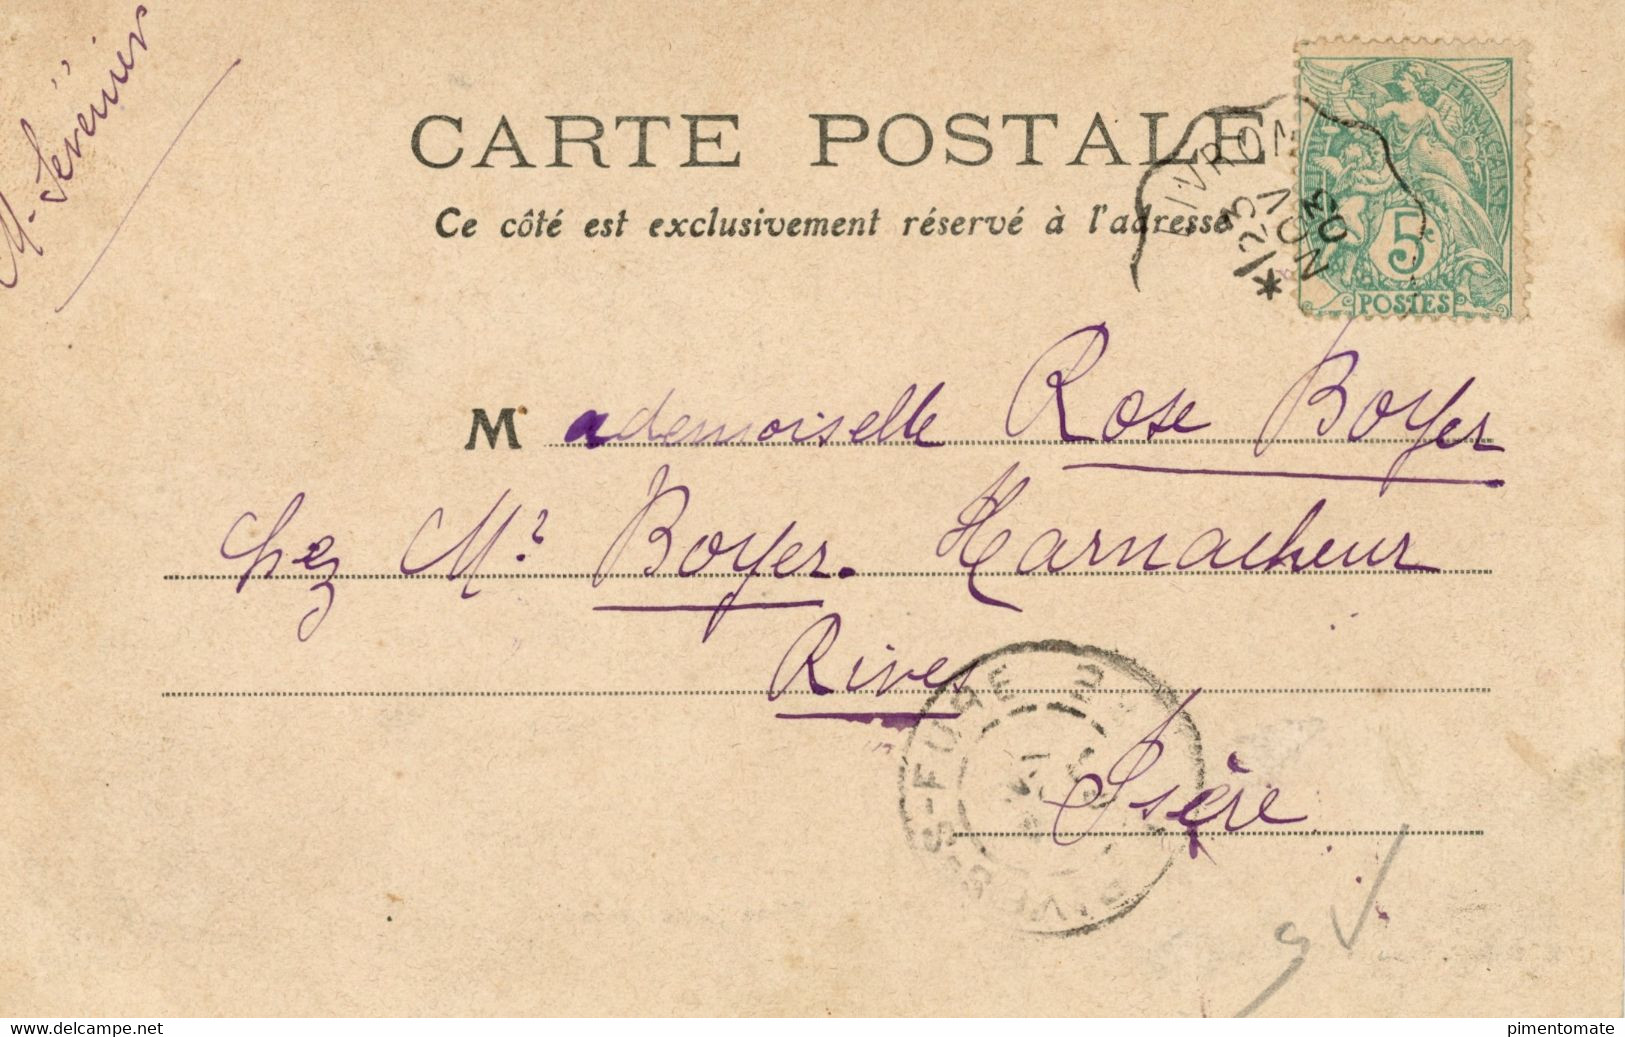 M. Sévenier
CARTE POSTALE
Ce côté est exclusivement réservé à l'adresse
LIVRON
*
23
NOV
03
FRANÇAISE
5c
POSTES
Mademoiselle Rose Boyer
chez Mr. Boyer. Harnacheur
Rives
Isère
S-FURE
delcampe.net
pimentomate